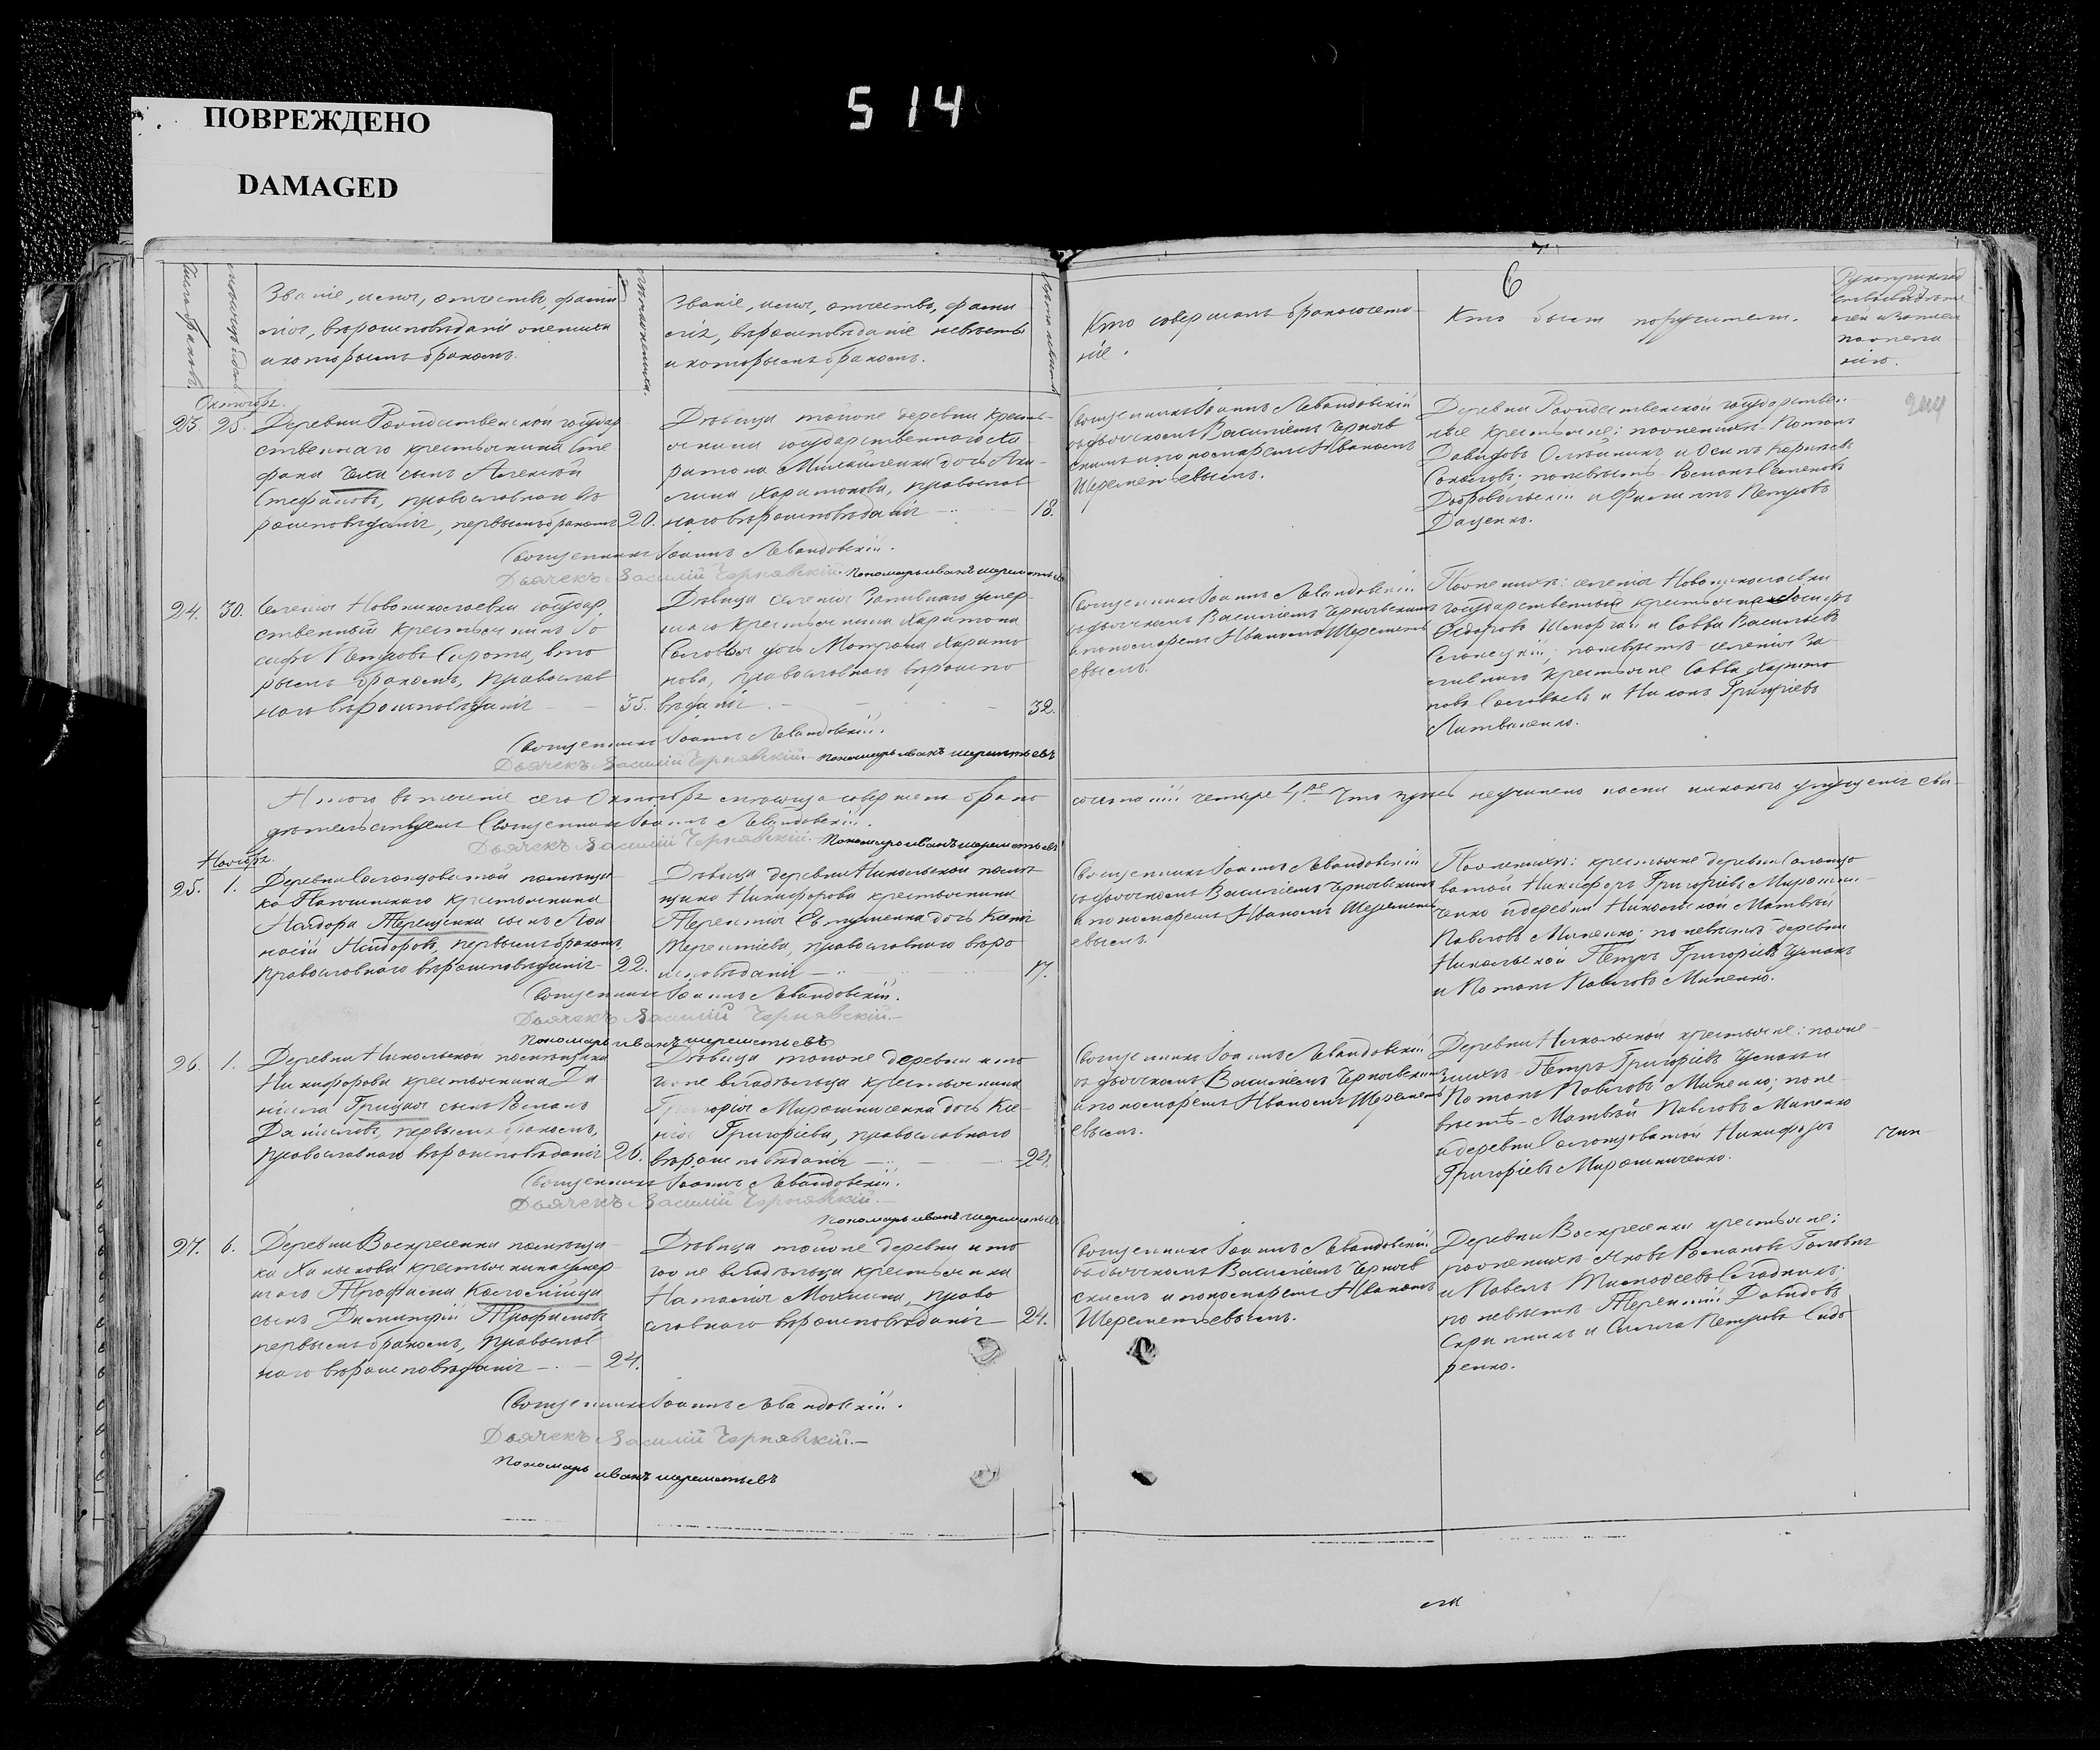 ПОВРЕЖДЕНО
DAMAGED
514
6
Званіе, имя, отчество, фами
лія, вѣроисповѣданіе жениха
и которымъ бракомъ.
Званіе, имя, отчество, фами
лія, вѣроисповѣданіе невѣсты
и которымъ бракомъ.
Кто совершалъ бракосочета
ніе.
Кто былъ поручители.
Октябрь.
23. 25.
Деревни Рождественской государ
ственнаго крестьянина Сте
фана сынъ Алексѣй
Стефановъ, православнаго вѣ
роисповѣданія, первымъ бракомъ 20.
Дѣвица тойже деревни кресть
янина государственнаго Ха
ритона Михайленка дочь Аку
лина Харитонова, православ
наго вѣроисповѣданія 18.
Священникъ Іоаннъ Левандовскій
съ дьячкомъ Василіемъ Черняв
скимъ и пономаремъ Иваномъ
Шереметьевымъ.
Деревни Рождественской государствен
ные крестьяне: по женихѣ Романъ
Давидовъ Олейникъ и Осипъ
по невѣстѣ Романъ Семеновъ
Добровольскій и Филиппъ Петровъ
Даценко.
244
Священникъ Іоаннъ Левандовскій.
Дьячекъ Василій Чернявскій. Пономарь иванъ шереметьевъ
24. 30.
Селенія Новониколаевки государ
ственный крестьянинъ Іо
сифъ Петровъ Сирота, вто
рымъ бракомъ, православ
наго вѣроисповѣданія 35.
Дѣвица селенія Заливнаго умер
шаго крестьянина Харитона
Соловья дочь Матрона Харито
нова, православнаго вѣроиспо
вѣданія 32.
Священникъ Іоаннъ Левандовскій
съ дьячкомъ Василіемъ Чернявскимъ
и пономаремъ Иваномъ Шеремет
евымъ.
По женихѣ: селенія Новониколаевки
государственный крестьянинъ Іосифъ
Ѳедоровъ и Савва Васильевъ
по невѣстѣ селенія За
ливнаго крестьяне Савва Харито
новъ Соловьевъ и Никонъ Григорьевъ
Литвиненко.
Священникъ Іоаннъ Левандовскій.
Дьячекъ Василій Чернявскій. Пономарь иванъ шереметьевъ
Итого въ теченіе сего Октября мѣсяца совершено брако
сочетаній четыре 4. Что здѣсь неучинено нами никакого упущенія сви
дѣтельствуемъ Священникъ Іоаннъ Левандовскій.
Дьячекъ Василій Чернявскій. Пономарь иванъ шереметьевъ
Ноябрь.
25. 1.
Деревни Солонцоватой помѣщи
ка крестьянина
Терещенка сынъ
первымъ бракомъ,
православнаго вѣроисповѣданія 22.
Дѣвица деревни Никольской помѣ
щика Никифорова крестьянина
Терентія Евтушенка дочь Ксенія
Терентіева, православнаго вѣро
исповѣданія 17.
Священникъ Іоаннъ Левандовскій
съ дьячкомъ Василіемъ Чернявскимъ
и пономаремъ Иваномъ Шеремет
евымъ.
По женихѣ: крестьяне деревни Солонцо
ватой Никифоръ Григорьевъ Мирошни
ченко и деревни Никольской Матвѣй
Павловъ Миненко; по невѣстѣ деревни
Никольской Петръ Григорьевъ
и Романъ Павловъ Миненко.
Священникъ Іоаннъ Левандовскій.
Дьячекъ Василій Чернявскій.
Пономарь иванъ шереметьевъ
26. 1.
Деревни Никольской помѣщика
Никифорова крестьянина Да
ніила Грицая сынъ Романъ
Даниловъ, первымъ бракомъ,
православнаго вѣроисповѣданія 26.
Дѣвица тойже деревни и то
гоже владѣльца крестьянина
Григорія Мирошниченка дочь Ксе
нія Григорьева, православнаго
вѣроисповѣданія 24.
Священникъ Іоаннъ Левандовскій
съ дьячкомъ Василіемъ Чернявскимъ
и пономаремъ Иваномъ Шеремет
евымъ.
Деревни Никольской крестьяне: по же
нихѣ Петръ Григорьевъ и
Романъ Павловъ Миненко; по не
вѣстѣ Матвѣй Павловъ Миненко
и деревни Солонцоватой Никифоръ
Григорьевъ Мирошниченко.
Священникъ Іоаннъ Левандовскій.
Дьячекъ Василій Чернявскій.
Пономарь иванъ шереметьевъ
27. 6.
Деревни Воскресенки помѣщи
ка Ханыкова крестьянина умер
шаго Трофима
сынъ Димитрій Трофимовъ
первымъ бракомъ, православ
наго вѣроисповѣданія 24.
Дѣвица тойже деревни и то
гоже владѣльца крестьянка
Наталія право
славнаго вѣроисповѣданія 24.
Священникъ Іоаннъ Левандовскій
съ дьячкомъ Василіемъ Черняв
скимъ и пономаремъ Иваномъ
Шереметьевымъ.
Деревни Воскресенки крестьяне:
по женихѣ Яковъ Романовъ
и Павелъ Тимоѳеевъ
по невѣстѣ Терентій Давидовъ
Скрипникъ и Петровъ Сидо
ренко.
Священникъ Іоаннъ Левандовскій.
Дьячекъ Василій Чернявскій.
Пономарь иванъ шереметьевъ